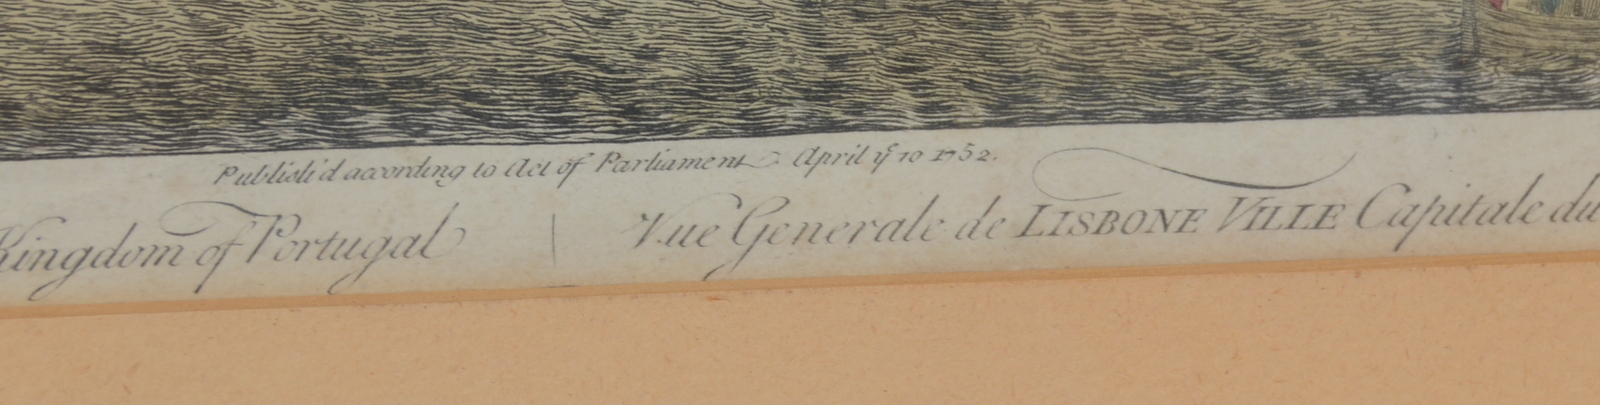 Publish'd according to Act of Parliament April yͤ 10 1752.
Kingdom of Portugal | Vue Generale de LISBONE VILLE Capitale du